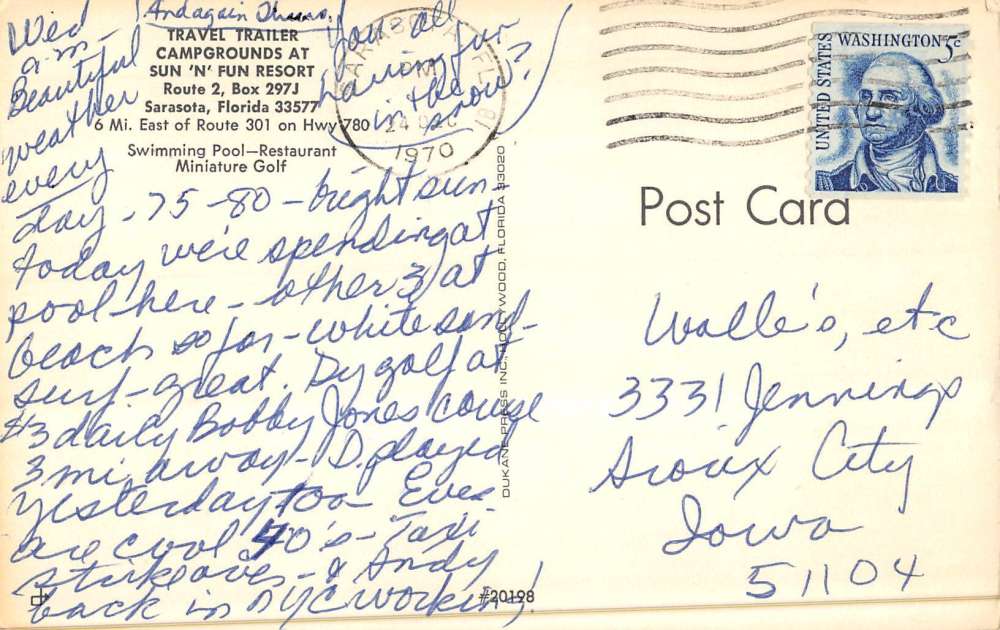 And again Thurs.
TRAVEL TRAILER
CAMPGROUNDS AT
SUN 'N' FUN RESORT
Route 2, Box 297J
Sarasota, Florida 33577
6 Mi. East of Route 301 on Hwy 780
Swimming Pool—Restaurant
Miniature Golf
Wed
a.m.
Beautiful
weather
every
day - 75 - 80 - bright sun
today we're spending at
pool here - other 3 at
beach so far - white sand -
surf - great. Dy golf at
$3 daily Bobby Jones course
3 mi. away - D. played
yesterday too - Eves
are cool 40's - Taxi
strike over - & Andy
back in NYC working!
You all
having fun
in the
snow?
FLA
PM
24 DEC
1970
UNITED STATES
WASHINGTON 5c
Post Card
DUKANE PRESS INC., HOLLYWOOD, FLORIDA 33020
Walle's, etc
3331 Jennings
Sioux City
Iowa
51104
#20198